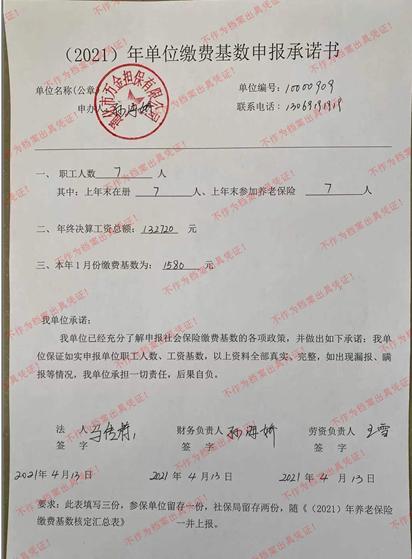 （2021）年单位缴费基数申报承诺书
单位名称(公章) 单位编号：10000909
申办人：孙海娇 联系电话：13069191919
万金担保有限公司
一、 职工人数 7 人
其中：上年末在册 7 人、上年末参加养老保险 7 人
二、年终决算工资总额：132720 元
三、本年1月份缴费基数为：1580 元
我单位承诺：
我单位已经充分了解申报社会保险缴费基数的各项政策，并做出如下承诺：我单
位保证如实申报单位职工人数、工资基数，以上资料全部真实、完整，如出现漏报、瞒
报等情况，我单位承担一切责任，后果自负。
法 人 财务负责人 孙海娇 劳资负责人 王雪
签 字 签 字 签 字
2021年4月13日 2021年4月13日 2021年4月13日
要求：此表填写三份，参保单位留存一份，社保局留存两份，随《（2021）年养老保险
缴费基数核定汇总表》一并上报。
不作为档案出具凭证！